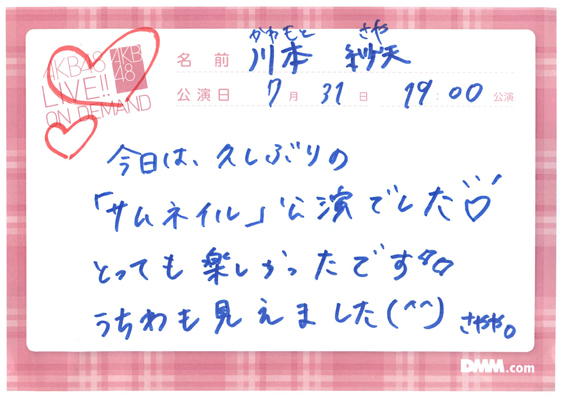 AKB48
LIVE!!
ON DEMAND
AKB
48
かわもと さや
名前 川本 紗矢
公演日 7月 31日 19:00 公演
今日は、久しぶりの
「サムネイル」公演でした♡
とっても楽しかったです♡
うちわも見えました(^^) さやや。
DMM.com